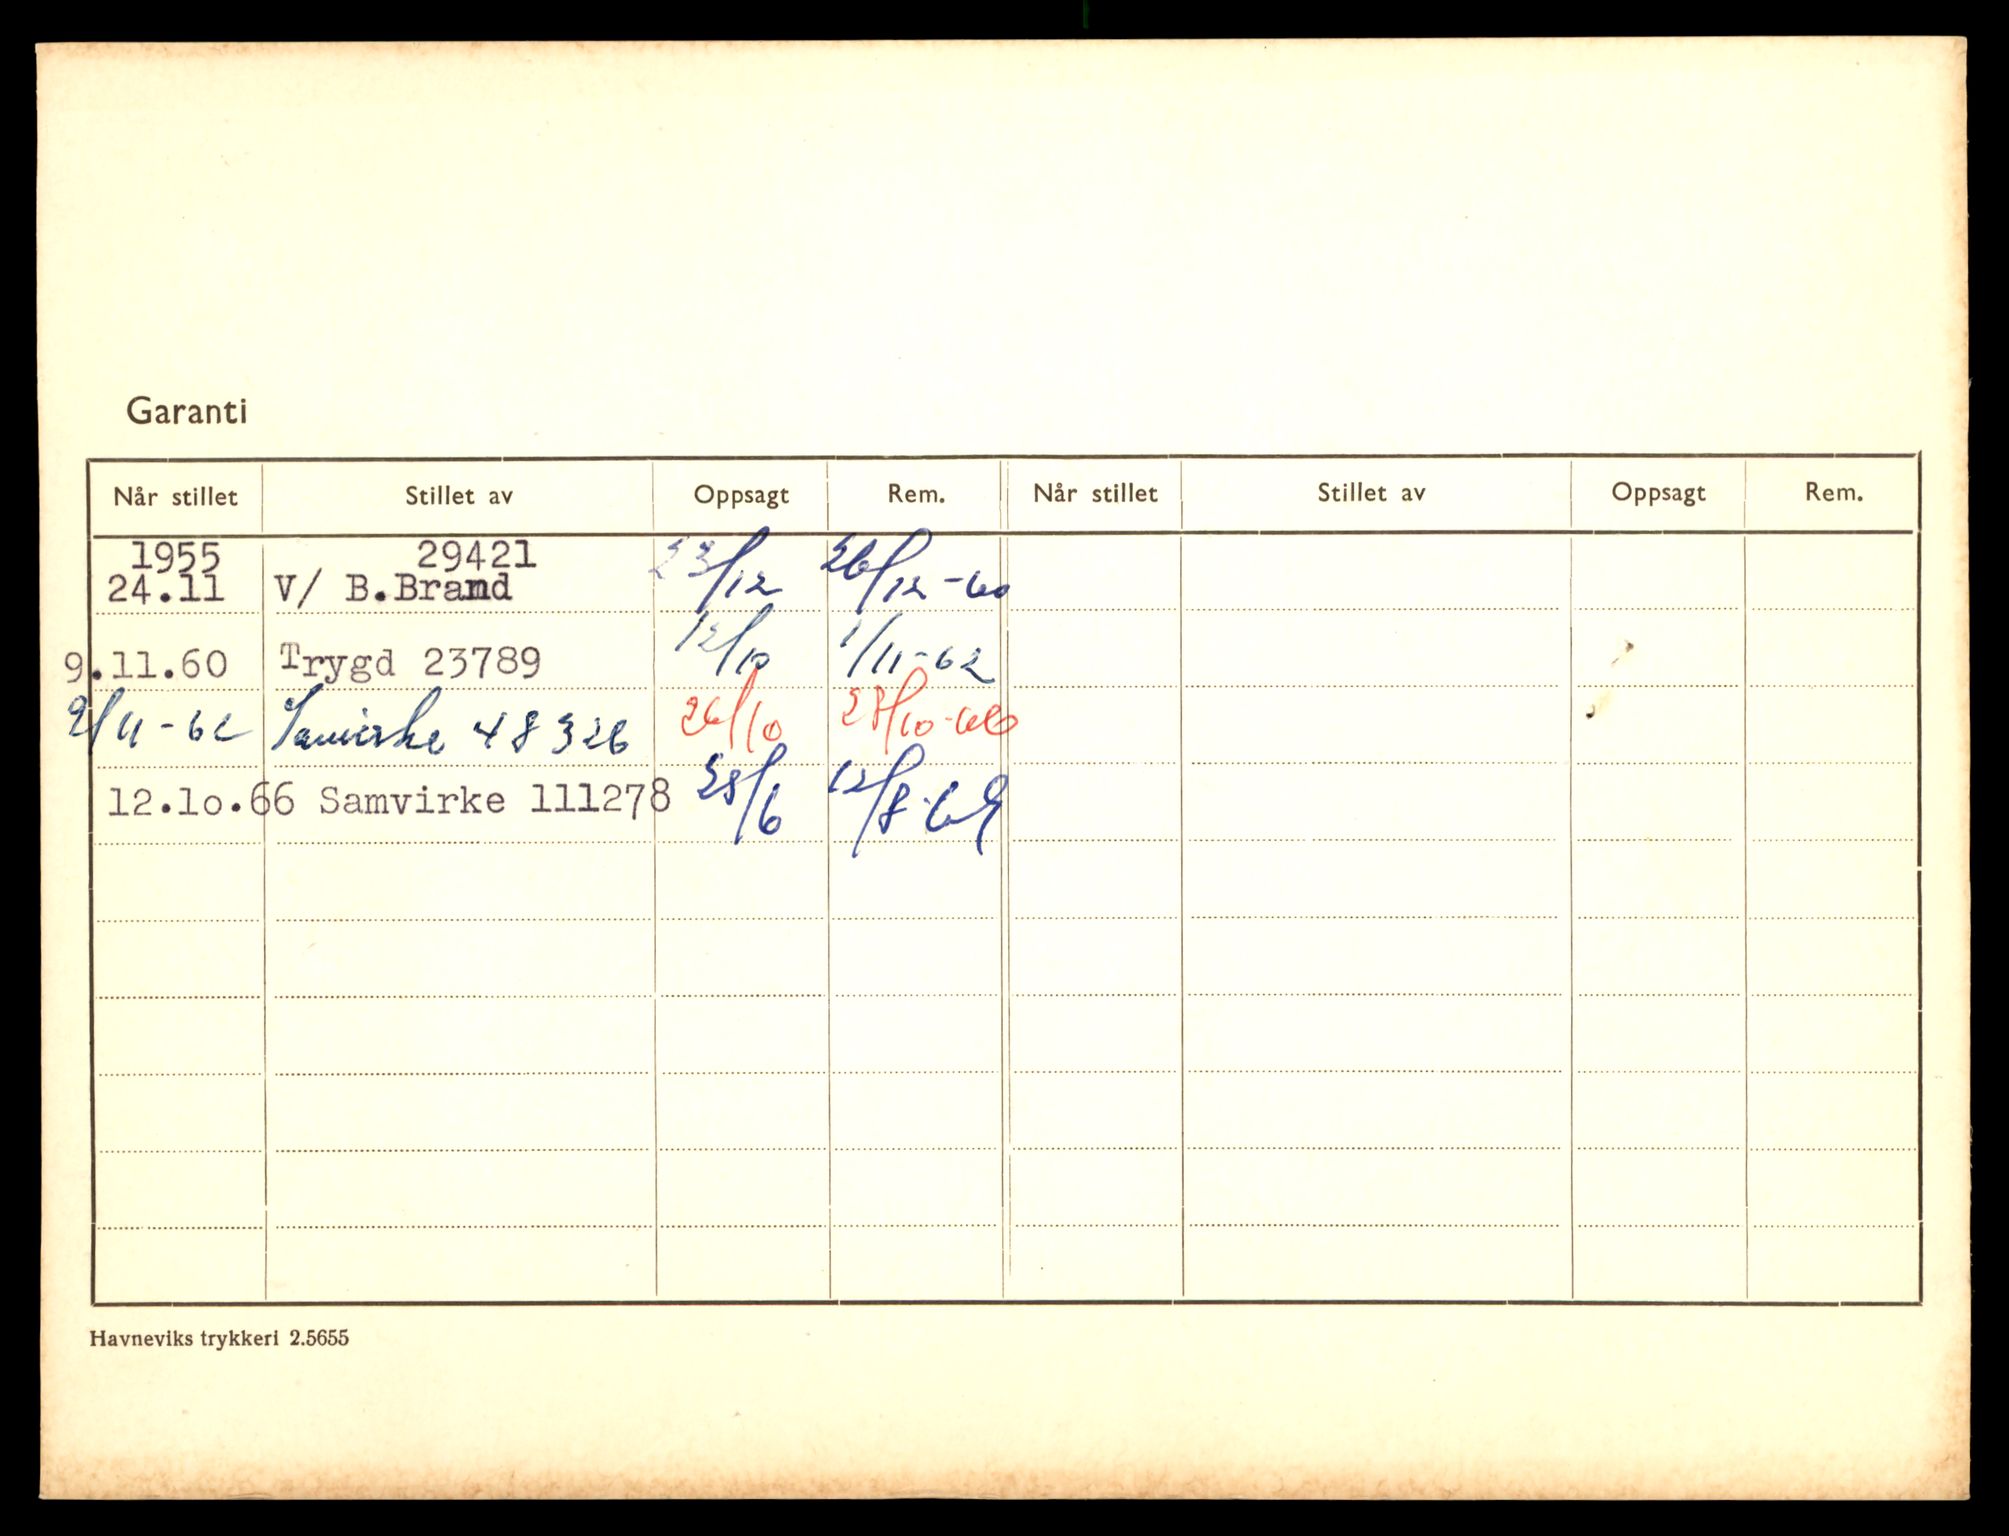 Garanti
Når stillet Stillet av Oppsagt Rem. Når stillet Stillet av Oppsagt Rem.
1955 29421
24.11 V/ B.Brand 23/12 26/12-60
9.11.60 Trygd 23789 12/10 1/11-62
9/11-62 Samvirke 48326 26/10 28/10-66
12.1o.66 Samvirke 111278 28/6 12/8-69
Havneviks trykkeri 2.5655